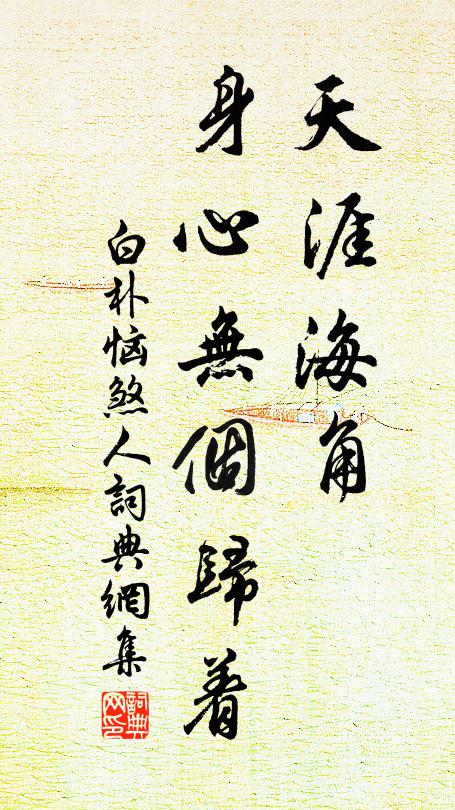 天涯海角
身心無個歸着
白朴惱煞人詞典網集
詞典
网印